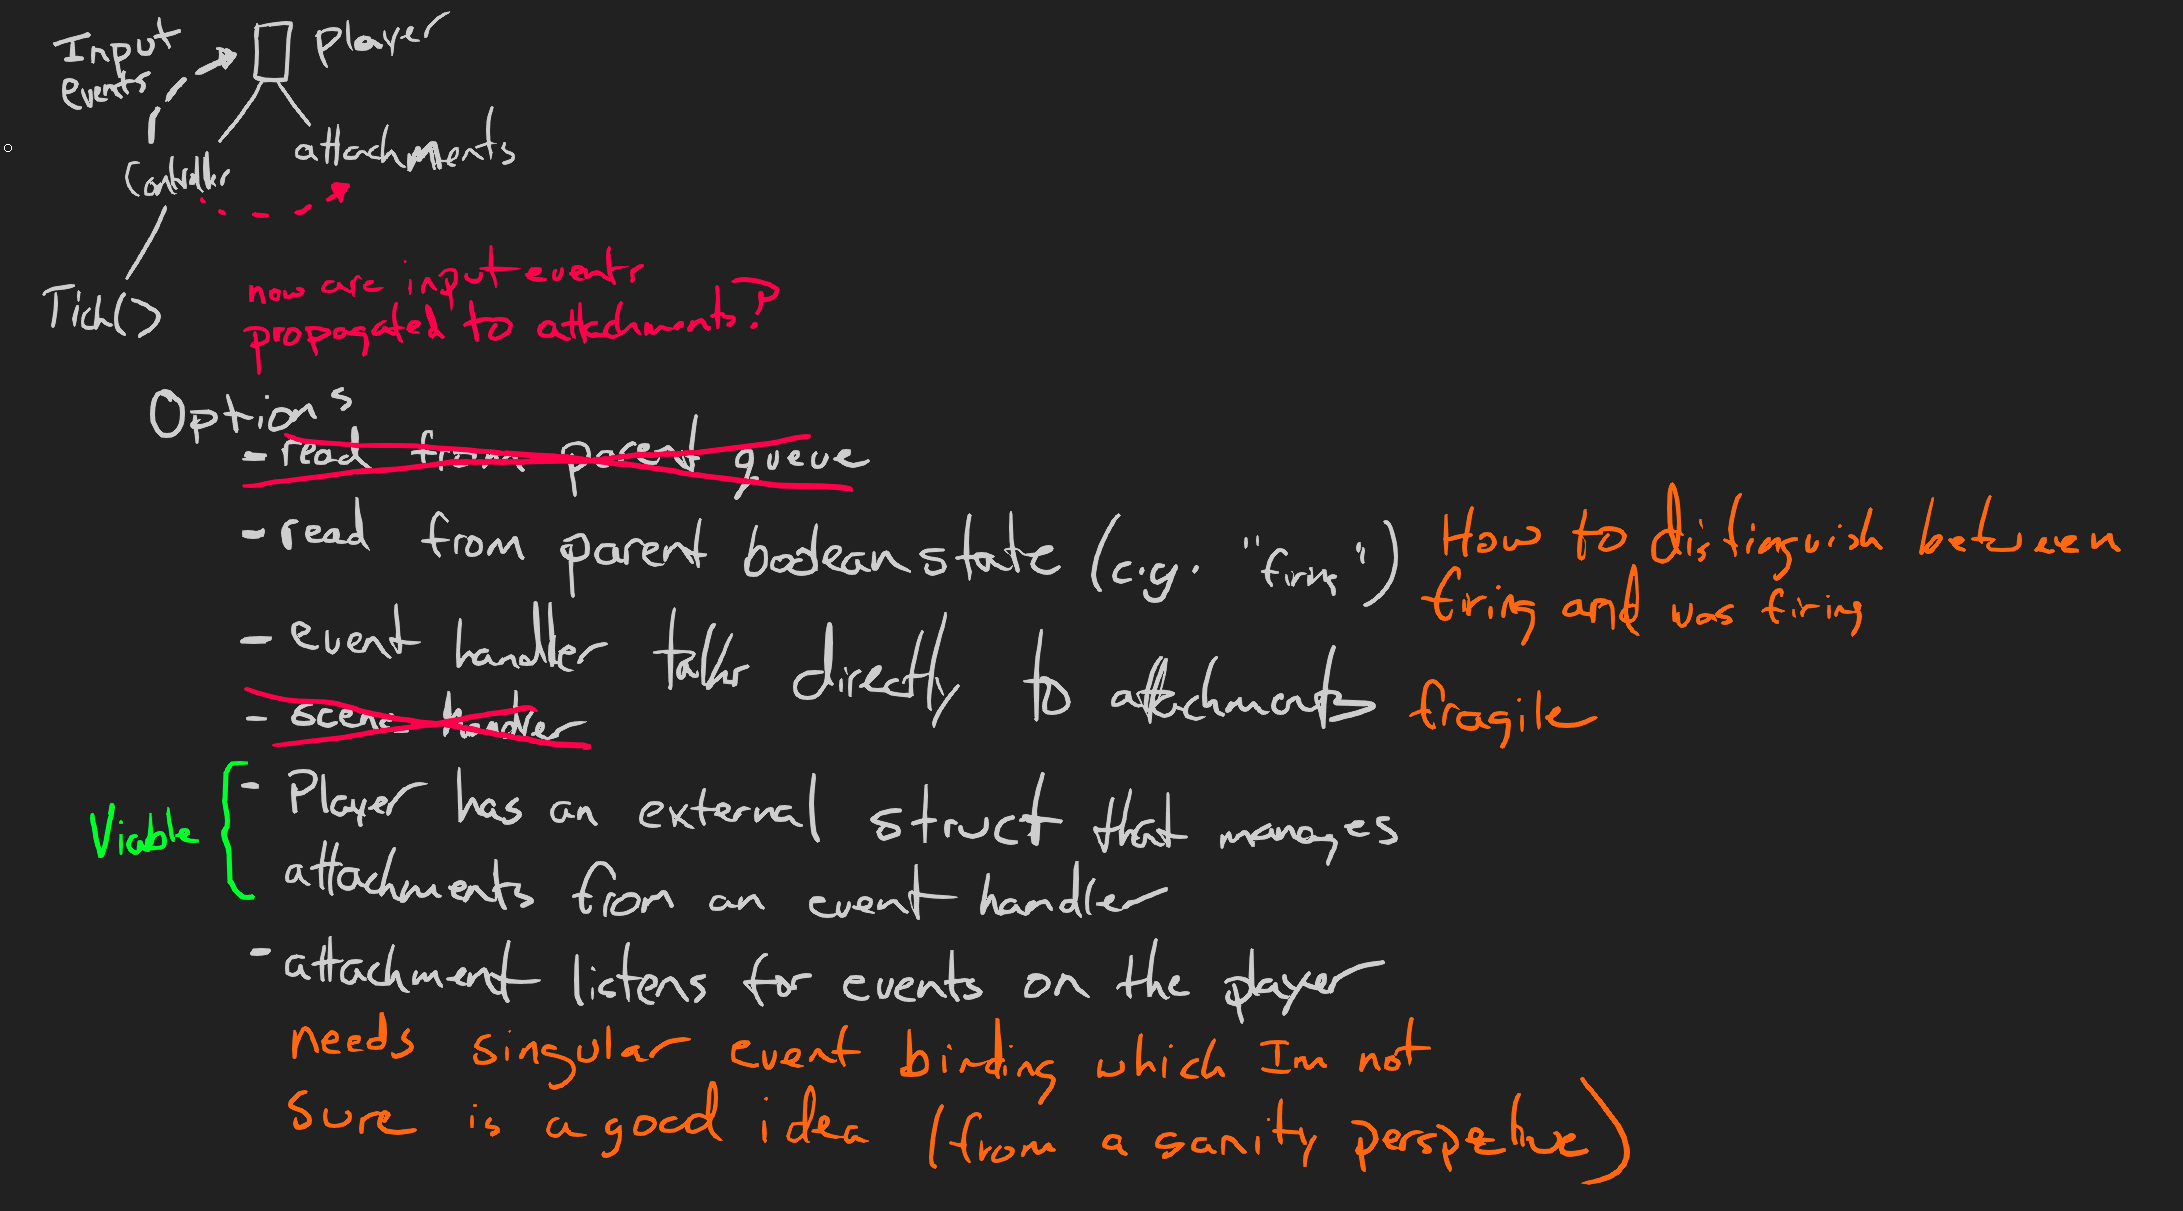 Input
events
player
Controller
attachments
Tick()
how are input events
propagated to attachments?
Options
- read from parent queue
- read from parent boolean state (e.g. "firing")
How to distinguish between
firing and was firing
- event handler talks directly to attachments
fragile
- scene handler
Viable
- Player has an external struct that manages
attachments from an event handler
- attachment listens for events on the player
needs singular event binding which Im not
sure is a good idea (from a sanity perspective)